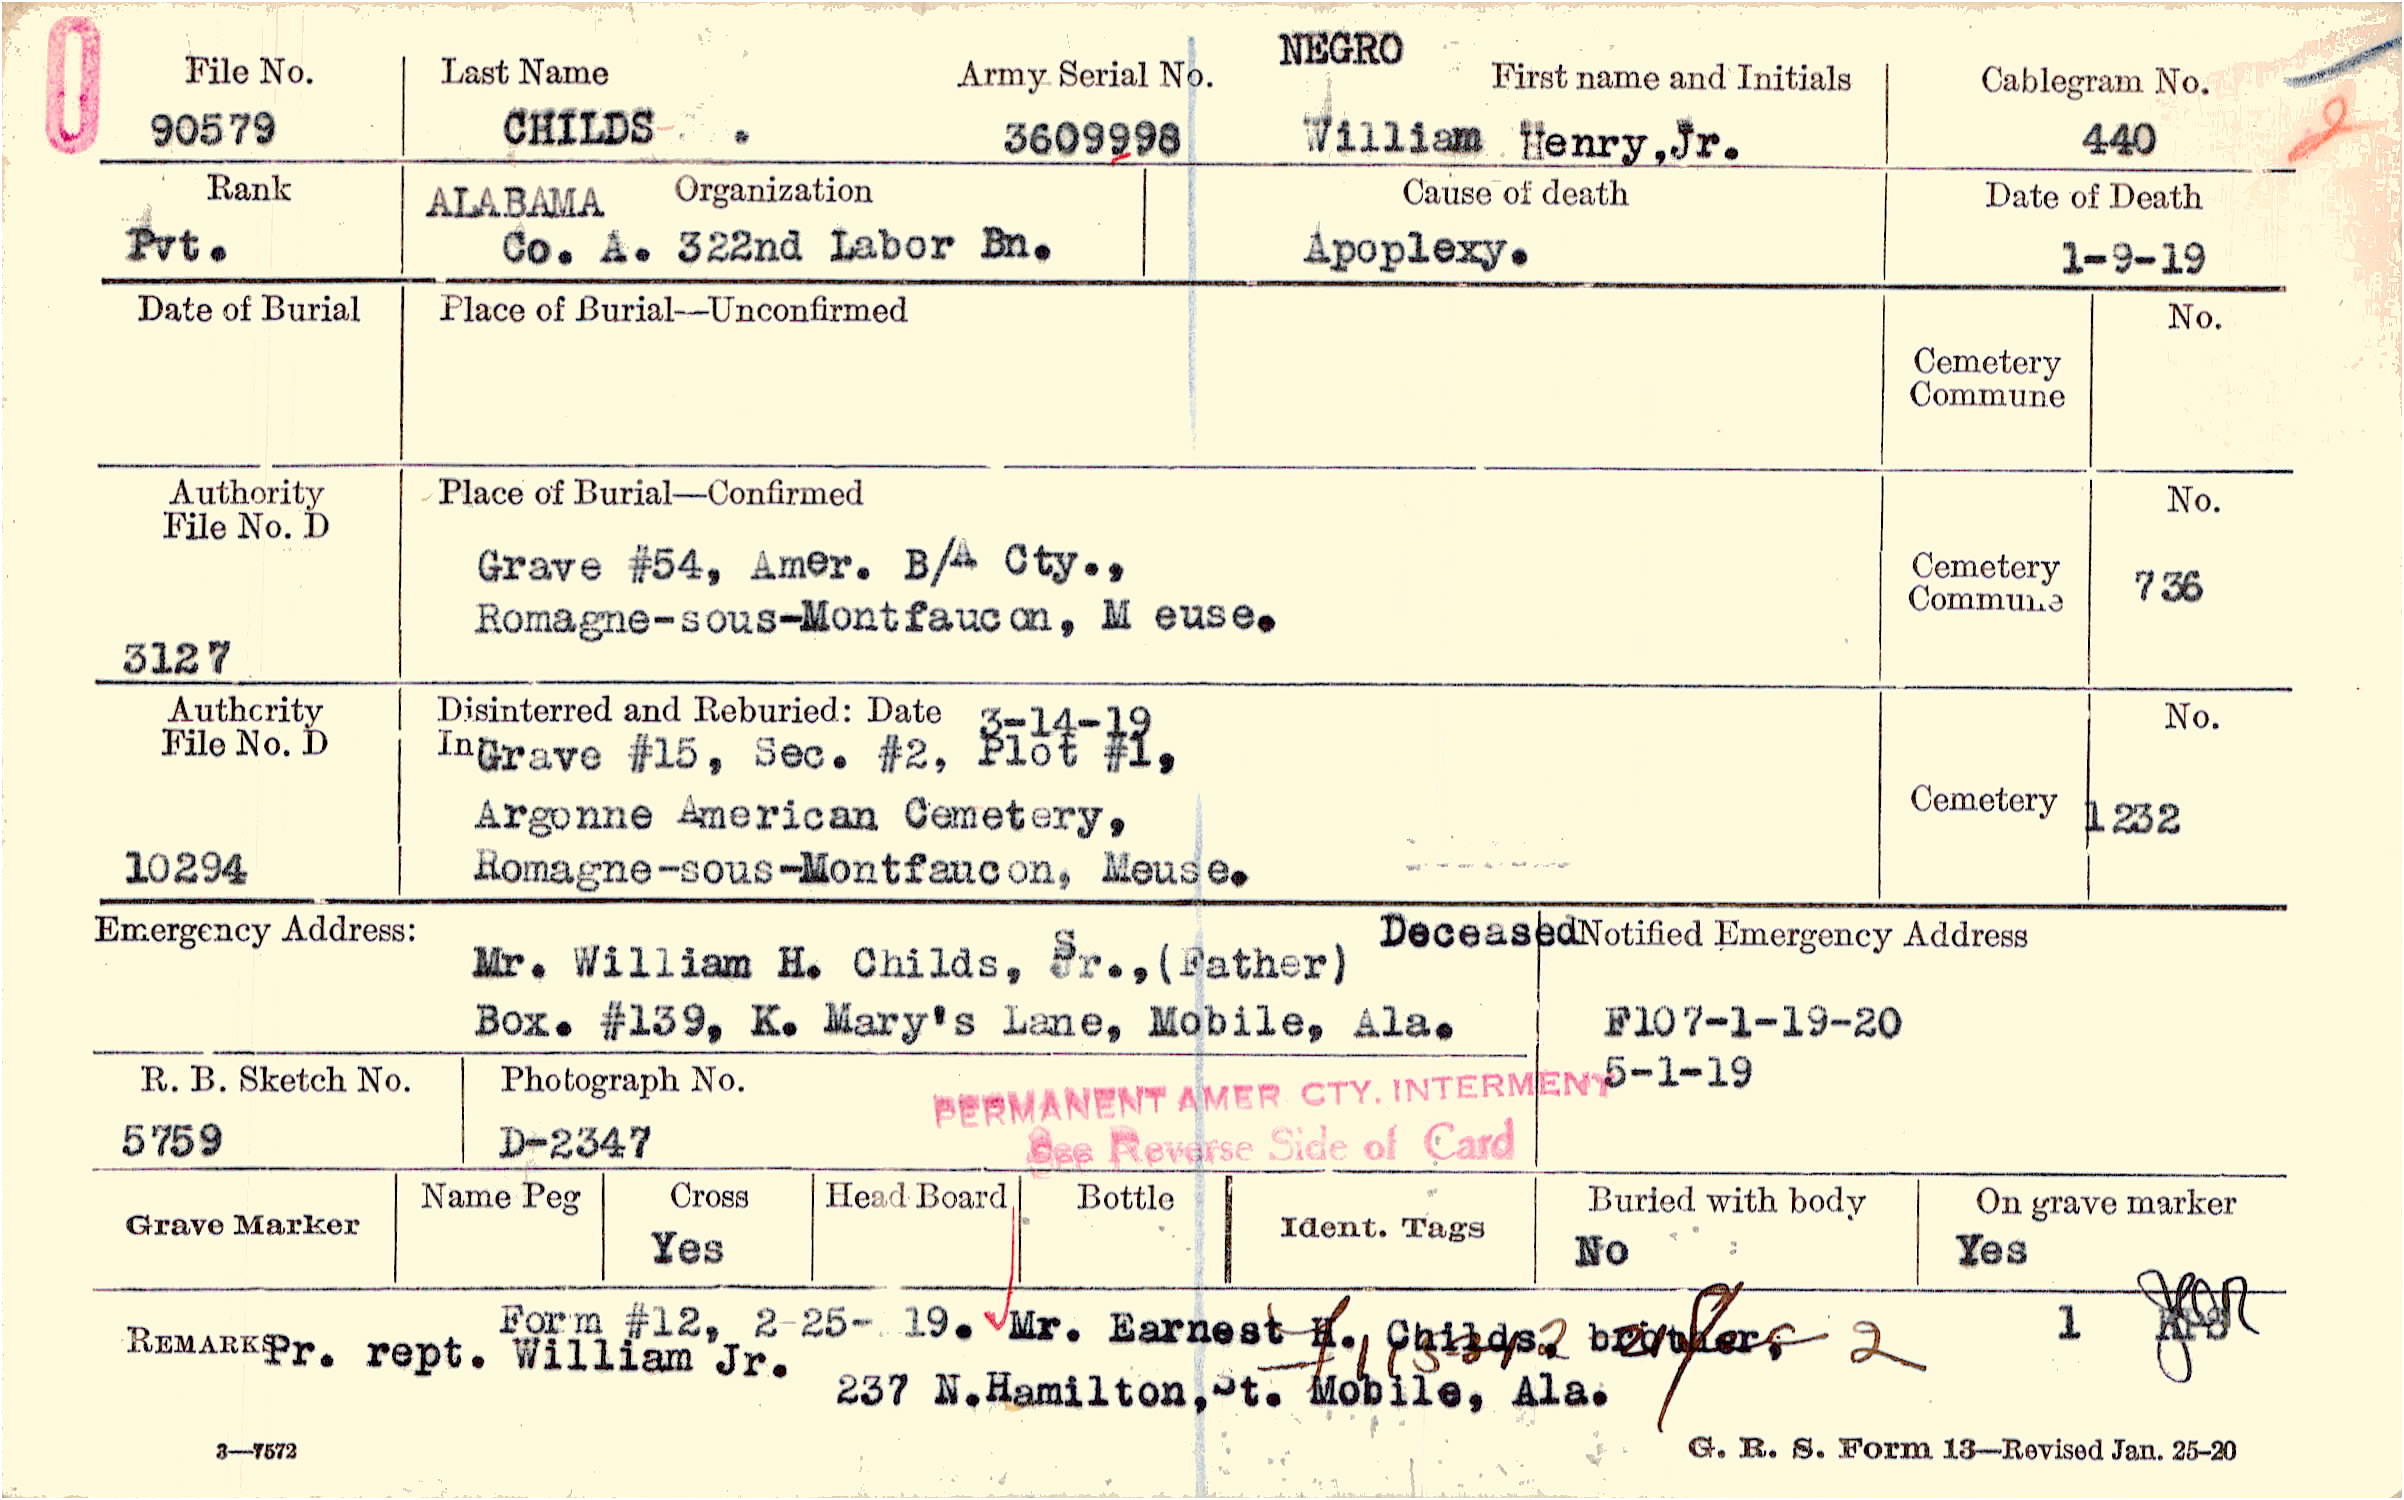 NEGRO
File No. Last Name Army Serial No. First name and Initials Cablegram No.
90579 CHILDS . 3609998 William Henry,Jr. 440
Rank ALABAMA Organization Cause of death Date of Death
Pvt. Co. A. 322nd Labor Bn. Apoplexy. 1-9-19
Date of Burial Place of Burial—Unconfirmed No.
Cemetery
Commune
Authority Place of Burial—Confirmed No.
File No. D
Grave #54, Amer. B/A Cty., Cemetery
Romagne-sous-Montfaucon, M euse. Commune 736
3127
Authority Disinterred and Reburied: Date 3-14-19 No.
File No. D In Grave #15, Sec. #2, Plot #1,
Argonne American Cemetery, Cemetery 1232
10294 Romagne-sous-Montfaucon, Meuse.
Emergency Address: Deceased Notified Emergency Address
Mr. William H. Childs, Sr.,(Father)
Box. #139, K. Mary's Lane, Mobile, Ala. F107-1-19-20
5-1-19
R. B. Sketch No. Photograph No. PERMANENT AMER CTY. INTERMENT
5759 D-2347 See Reverse Side of Card
Grave Marker Name Peg Cross Head Board Bottle Ident. Tags Buried with body On grave marker
Yes No Yes
Form #12, 2-25- 19. Mr. Earnest H. Childs, brother, 2 1
REMARKS Pr. rept. William Jr.
237 N.Hamilton,St. Mobile, Ala.
3—7572 G. R. S. Form 13—Revised Jan. 25-20